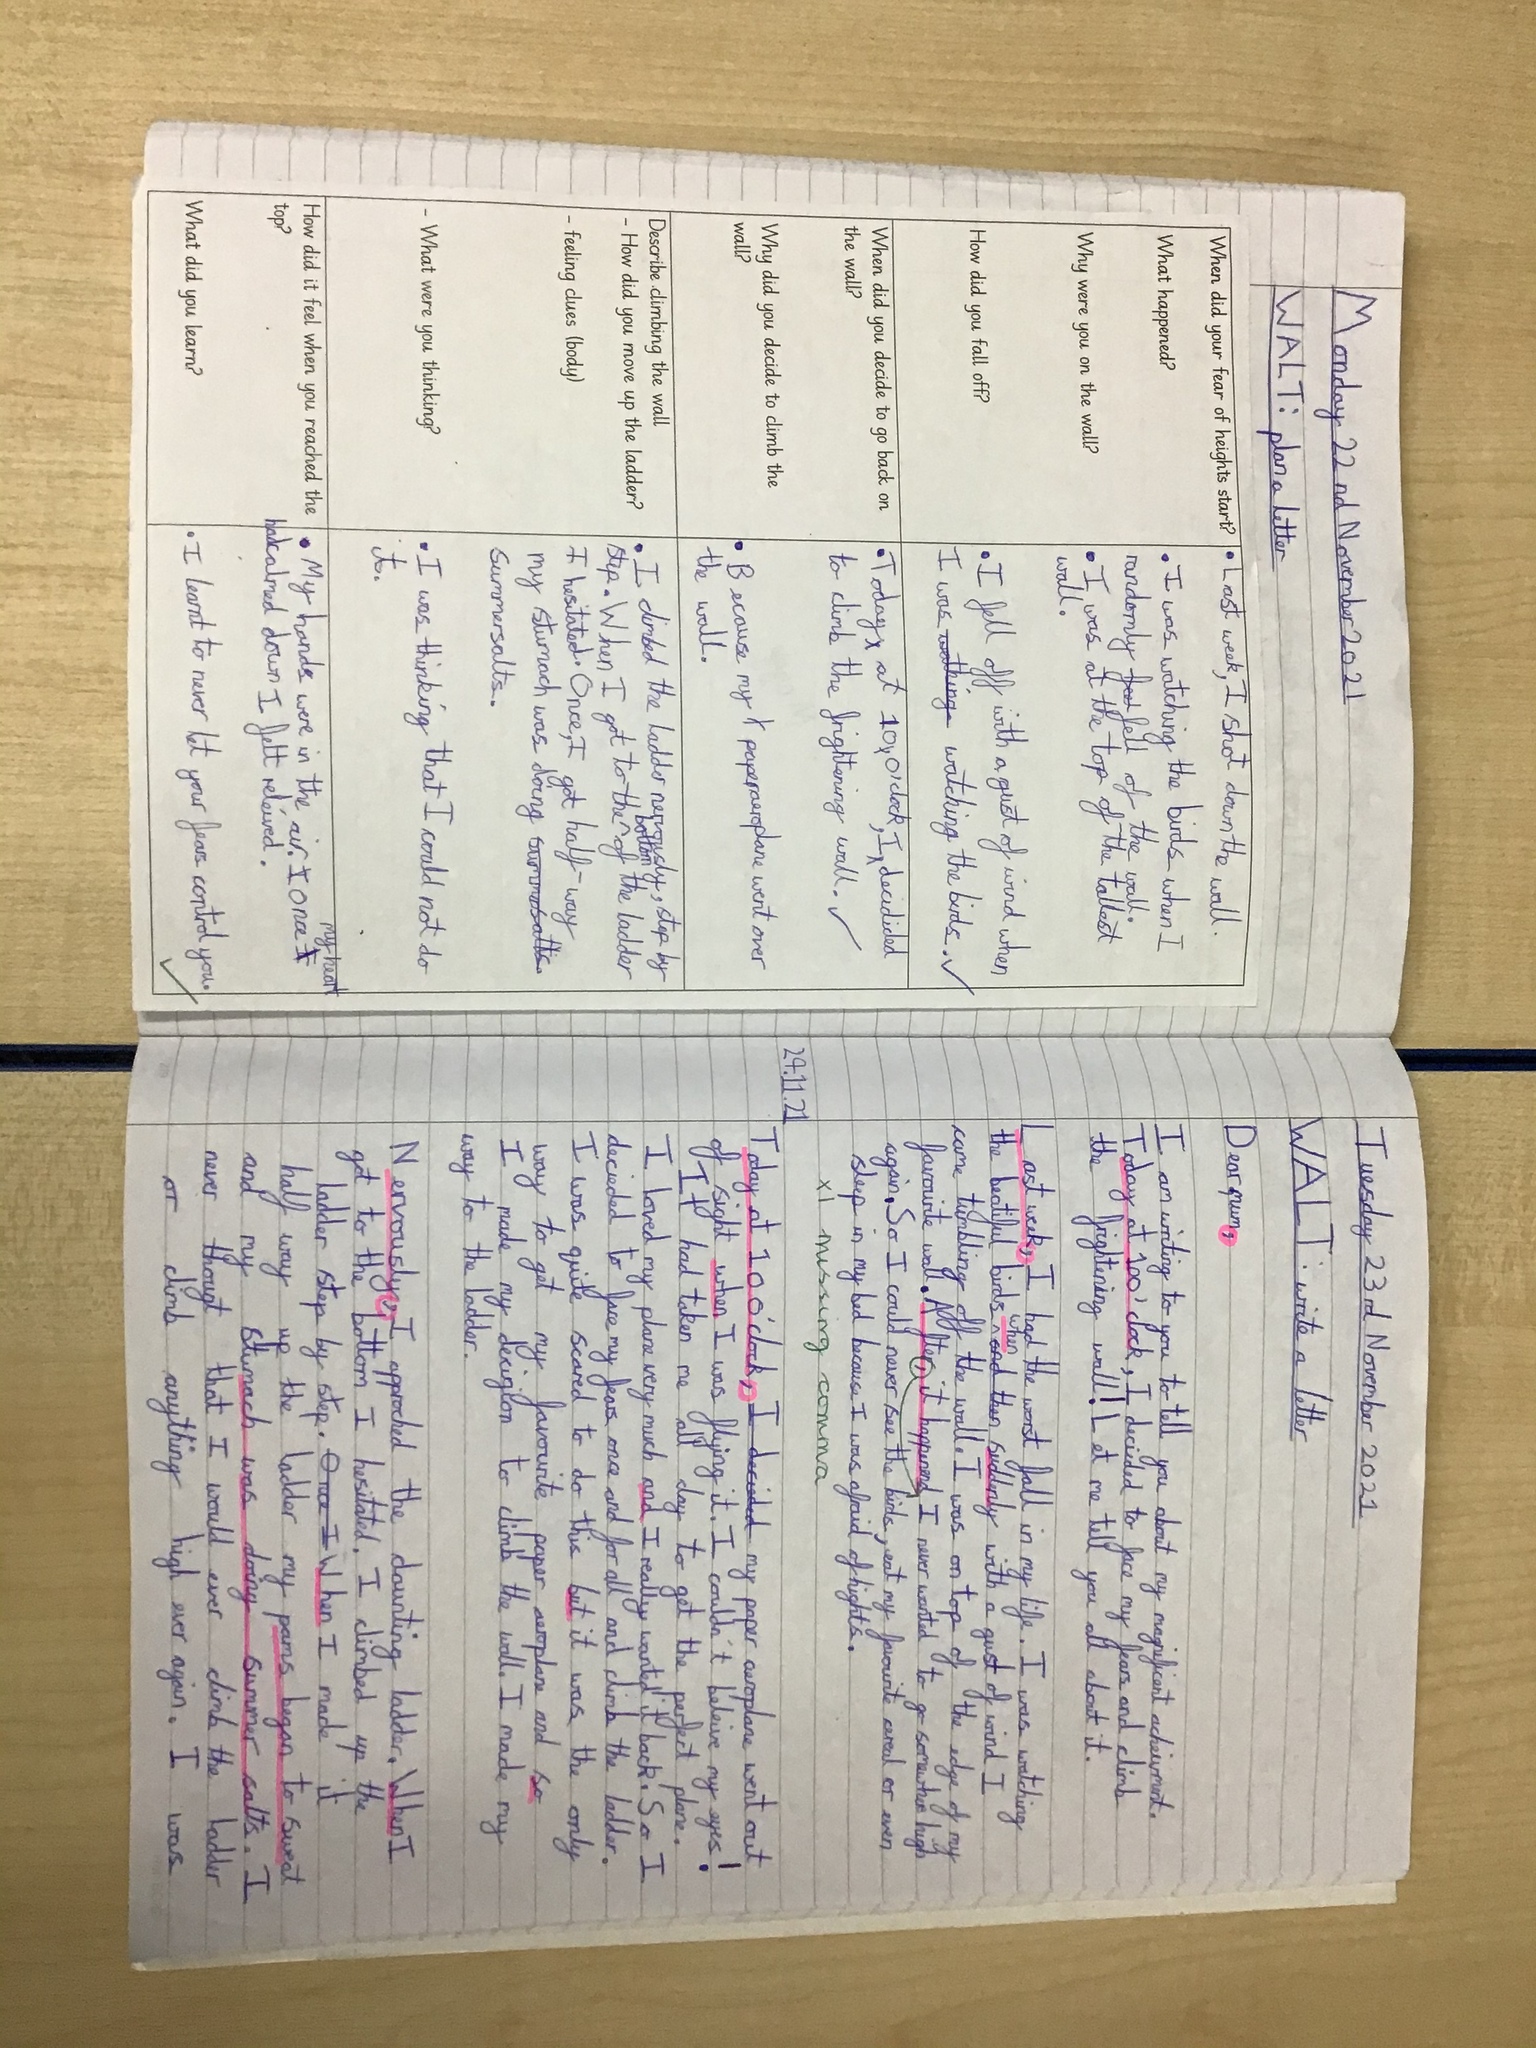 Monday 22nd November 2021
WALT: plan a letter
When did your fear of heights start?
• Last week, I shot down the wall.
What happened?
• I was watching the birds when I
randomly fell of the wall.
Why were you on the wall?
• I was at the top of the tallest
wall.
How did you fall off?
• I fell off with a gust of wind when
I was watching the birds. ✓
When did you decide to go back on
the wall?
• Today at 10,0'clock, I decidided
to climb the frightening wall. ✓
Why did you decide to climb the
wall?
• Because my paperaeroplane went over
the wall.
Describe climbing the wall
- How did you move up the ladder?
- feeling clues (body)
• I climbed the ladder nervously, step by
step. When I got to the bottom of the ladder
I hesitated. Once, I got half-way
my stumach was doing summosalts.
summersalts.
- What were you thinking?
• I was thinking that I could not do
it.
How did it feel when you reached the
top?
• My hands were in the air. I once my heart
had calmed down I felt releived.
What did you learn?
• I learnt to never let your fears control you.
✓
Tuesday 23rd November 2021
WALT: write a letter
Dear mum,
I am writing to you to tell you about my magnificent acheivment.
Today at 10O'clock, I decided to face my fears and climb
the frightening wall! Let me tell you all about it.
Last week, I had the worst fall in my life. I was watching
the beatiful birds and then when suddenly with a gust of wind I
came tumbling off the wall. I was on top of the edge of my
favourite wall. After it happened I never wanted to go somewhere high
again. So I could never see the birds, eat my favourite cereal or even
sleep in my bed because I was afraid of hights.
x1 missing comma
29.11.21
Today at 10O'clock, I decided my paper aeroplane went out
of sight when I was flying it. I couldn't beleive my eyes!
It had taken me all day to get the perfect plane.
I loved my plane very much and I really wanted it back. So I
decieded to face my fears once and for all and climb the ladder.
I was quite scared to do this but it was the only
way to get my favourite paper aeroplane and so
I made my decigion to climb the wall. I made my
way to the ladder.
Nervously, I approched the daunting ladder. When I
got to the bottom I hesitated. I climbed up the
ladder step by step. Once I When I made it
half way up the ladder my pams began to sweat
and my stumach was doing summer salts. I
never thought that I would ever climb the ladder
or climb anything high ever again. I was